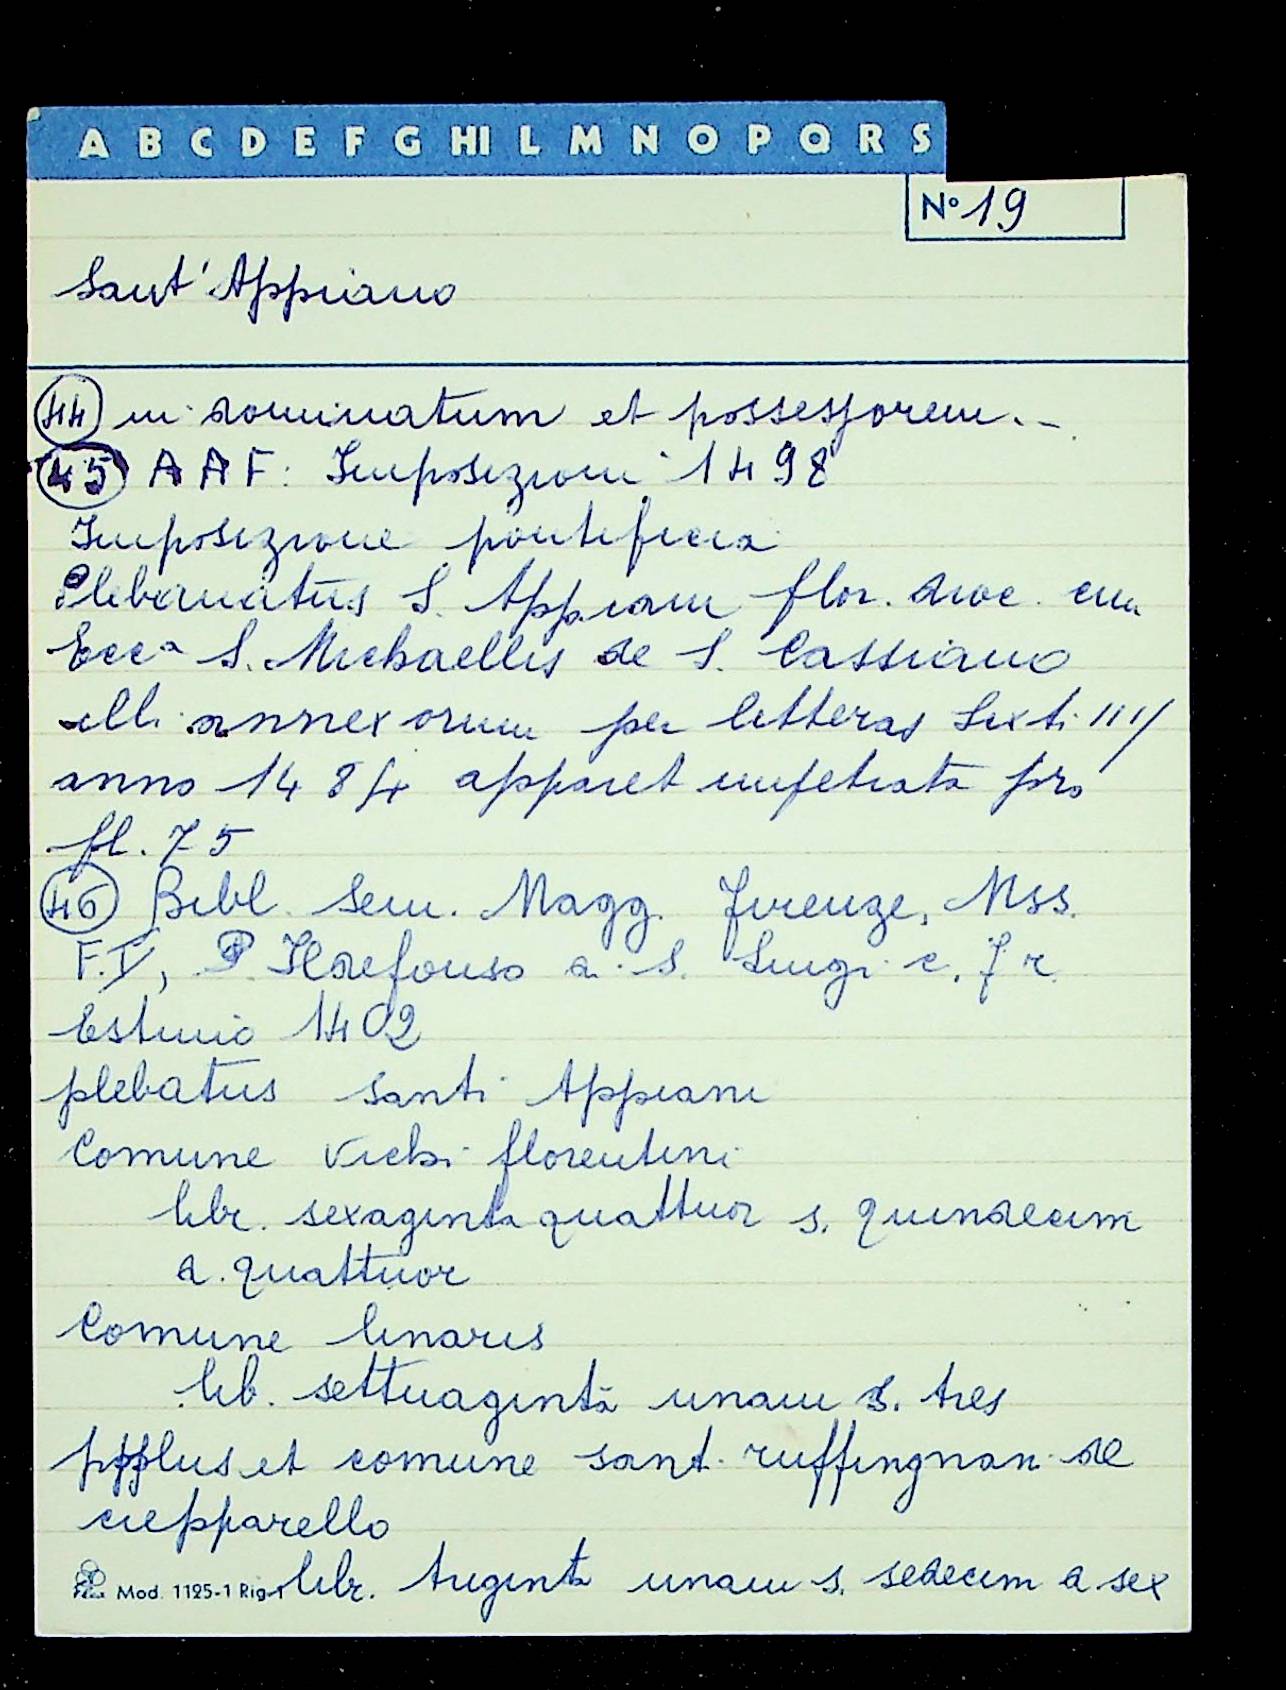 A B C D E F G HI L M N O P Q R S
N° 19
Sant'Appiano
44 in dominatum et possessorem..-
45 A A F: Imposizioni 1498
Imposizione pontificia
Plebanatus S. Appiani flor. dioc. cum
Ecc.a S. Michaellis de S. Cassiano
illi annexorum per letteras Sixti IIII
anno 1484 apparet impetrata pro
fl. 75
46 Bibl. Sem. Magg. Firenze, Mss.
F.V, P Ildefonso a. S. Luigi c. 7 r.
Estimo 1402
plebatus santi Appiani
Comune vichi florentini
libr. sexaginta quattuor s. quindecim
d. quattuor
Comune linaris
lib. settuaginta unam s. tres
ppplus et comune sant. ruffingnani de
ciepparello
Mod. 1125-1 Rig.1 libr. trigenta unam s. sedecim d sex